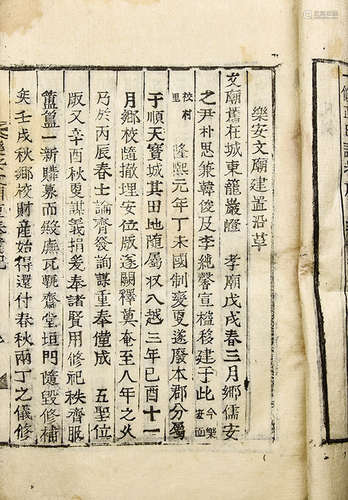 樂安文廟建置沿革
文廟舊在城東龍巖遯 孝廟戊戌春三月鄉儒安
之尹朴思燕韓俊及李純馨宣榏移建于此 今樂安面
校村里 隆熙元年丁未國制變更遂廢本郡分屬
于順天寶城其田地隨屬収入越三年己酉十一
月鄉校隨撤埋安位版遂闕釋奠奄至八年之久
乃於丙辰春士論齊發詢謀重奉僅成 五聖位
版又辛酉秋更謀義捐爰奉諸賢用修祀秩齊服
簠簋一新賻募而緻廡瓦甎齋堂垣門隨毀修補
矣壬戌秋鄉校財產始得還付春秋兩丁之儀修